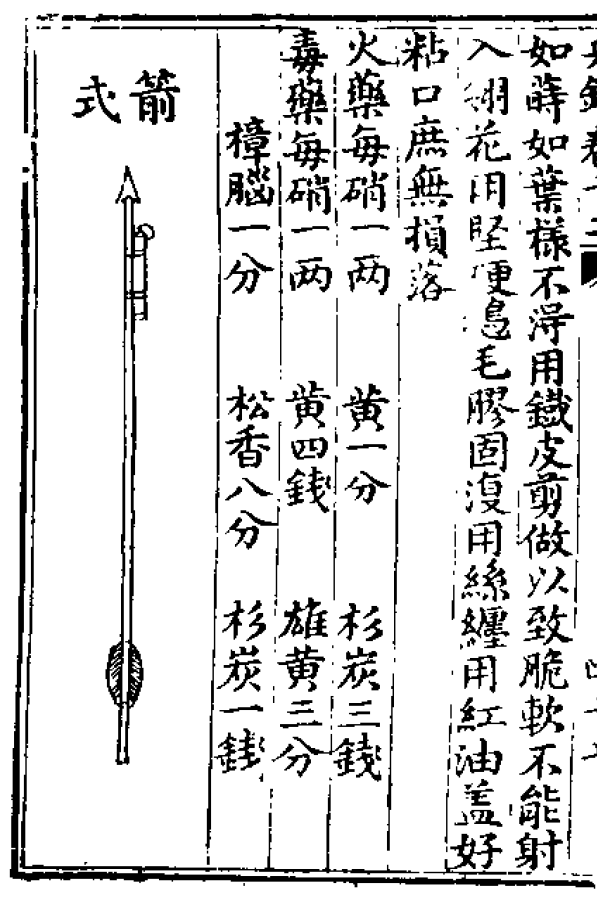 如蒔如葉樣不得用鐵皮剪做以致脆軟不能射
入翎花用堅硬鳥毛膠固復用絲纏用紅油盖好
粘口庶無損落
火藥每硝一两 黄一分 杉炭三錢
毒藥每硝一两 黄四錢 雄黄三分
樟腦一分 松香八分 杉炭一錢
箭式